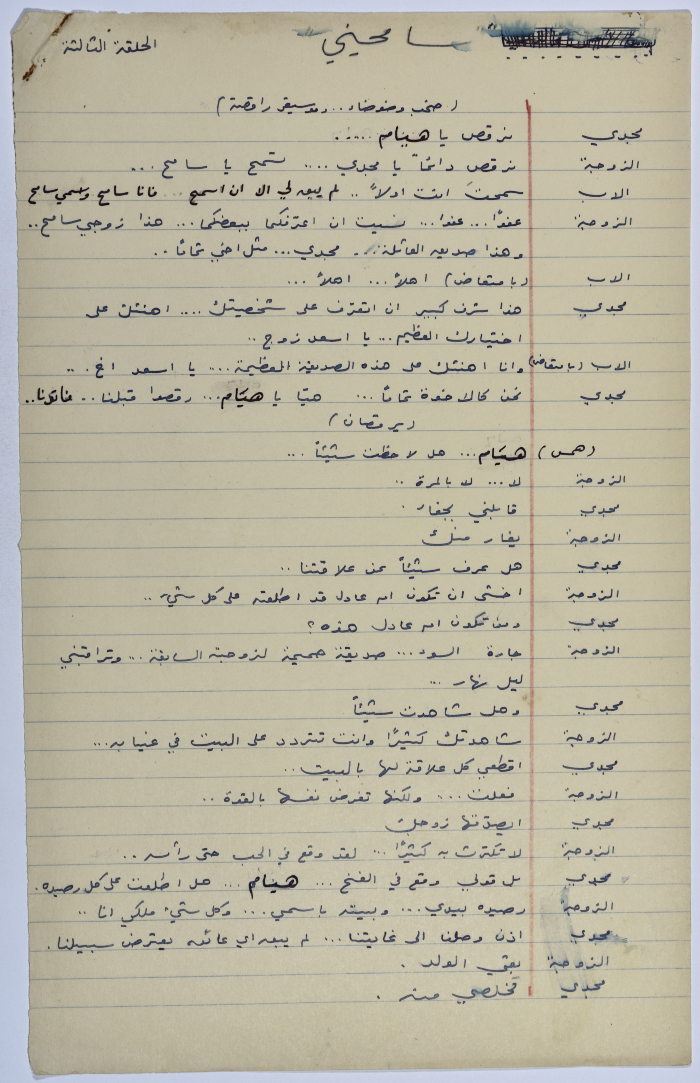 سامحيني
الحلقة الثالثة
(صخب وضوضاء... وموسيقى راقصة)
مجدي نرقص يا هيام .....
الزوجة نرقص دائماً يا مجدي .... تسمح يا سامح ...
الاب سمحتَ انت اولاً .. لم يبق لي الا ان اسمح .. فانا سامح واسمي سامح
الزوجة عفوًا... عفوا... نسيت ان اعرفكما ببعضكما... هذا زوجي سامح..
وهذا صديق العائلة... مجدي... مثل اخي تمامًا ..
الاب (بامتعاض) اهلاً... اهلاً ...
مجدي هذا شرف كبير ان اتعرّف على شخصيتك .... اهنئك على
اختيارك العظيم... يا اسعد زوج ..
الاب (بامتعاض) وانا اهنئك على هذه الصديقة العظيمة... يا اسعد اخ ...
مجدي نحن كالاخوة تمامًا ... هيّا يا هيام... رقصوا قبلنا ..
(يرقصان)
(همس) هيام... هل لاحظت شيئاً ...
الزوجة لا... لا بالمرة ..
مجدي قابلني بجفاء .
الزوجة يغار منك
مجدي هل عرف شيئاً عن علاقتنا ..
الزوجة اخشى ان تكون ام عادل قد اطلعته على كل شيء ..
مجدي ومن تكون ام عادل هذه ؟
الزوجة جارة السوء... صديقة حميمة لزوجته السابقة... وتراقبني
ليل نهار ...
مجدي وهل شاهدت شيئاً
الزوجة شاهدتك كثيرًا وانت تتردد على البيت في غيابه...
مجدي اقطعي كل علاقة لها بالبيت..
الزوجة فعلت... ولكنها تفرض نفسها بالقوة ..
مجدي ايصدّقها زوجك
الزوجة لا تكترث به كثيرًا ... لقد وقع في الحب حتى رأسه ..
مجدي بل قولي وقع في الفخ ... هيام ... هل اطلعت على كل رصيده.
الزوجة رصيده بيدي... وبيته باسمي... وكل شيء ملكي انا ..
مجدي اذن وصلنا الى غايتنا... لم يبق اي عائق يعترض سبيلنا.
الزوجة بقي الولد .
مجدي تخلصي منه .